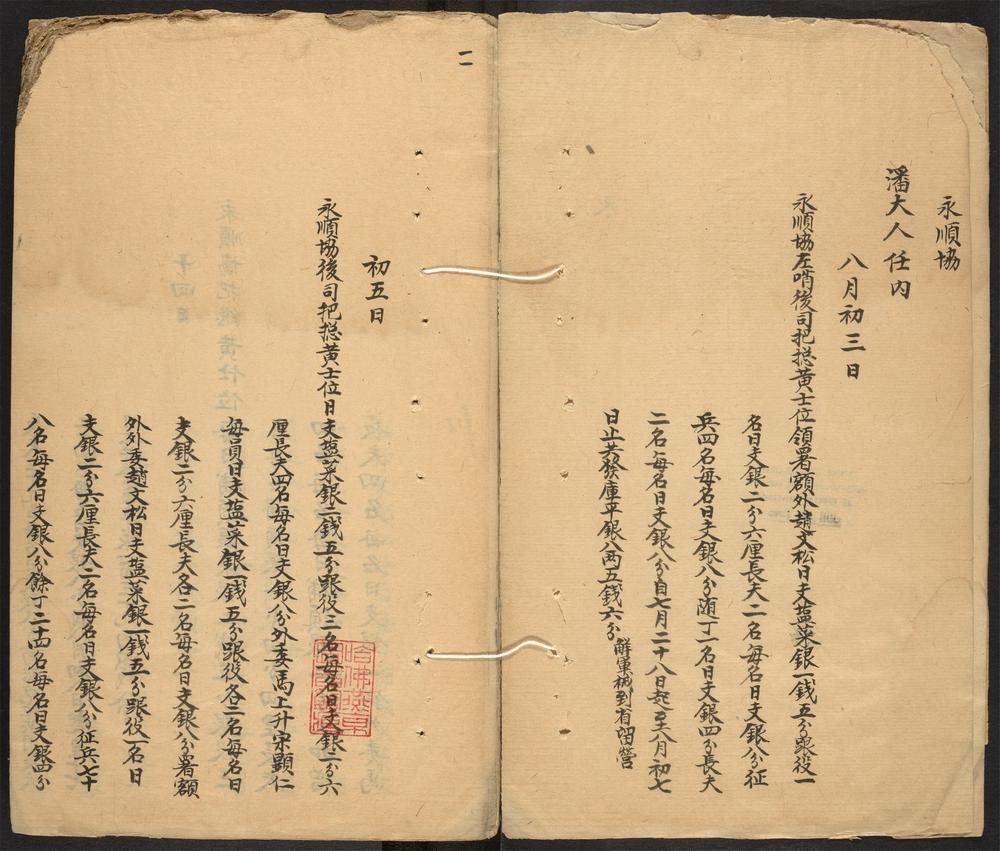 永順協
潘大人任內
八月初三日
永順協左哨後司把摠黃士位領署額外趙文松日支盐菜銀一錢五分跟役一
名日支銀二分六厘長夫二名每名日支銀八分征
兵四名每名日支銀八分随丁一名日支銀四分長夫
二名每名日支銀八分自七月二十八日起至八月初七
日止共發庫平銀八兩五錢六分解軍械到省留營
初五日
永順協後司把摠黃士位日支盐菜銀二錢五分跟役三名每名日支銀二分六
厘長夫四名每名日支銀八分外委馬上升宋顯仁
每員日支盐菜銀一錢五分跟役各二名每名日
支銀二分六厘長夫各二名每名日支銀八分署額
外外委趙文松日支盐菜銀一錢五分跟役一名日
支銀二分六厘長夫二名每名日支銀八分征兵七十
八名每名日支銀八分餘丁二十四名每名日支銀四分
一